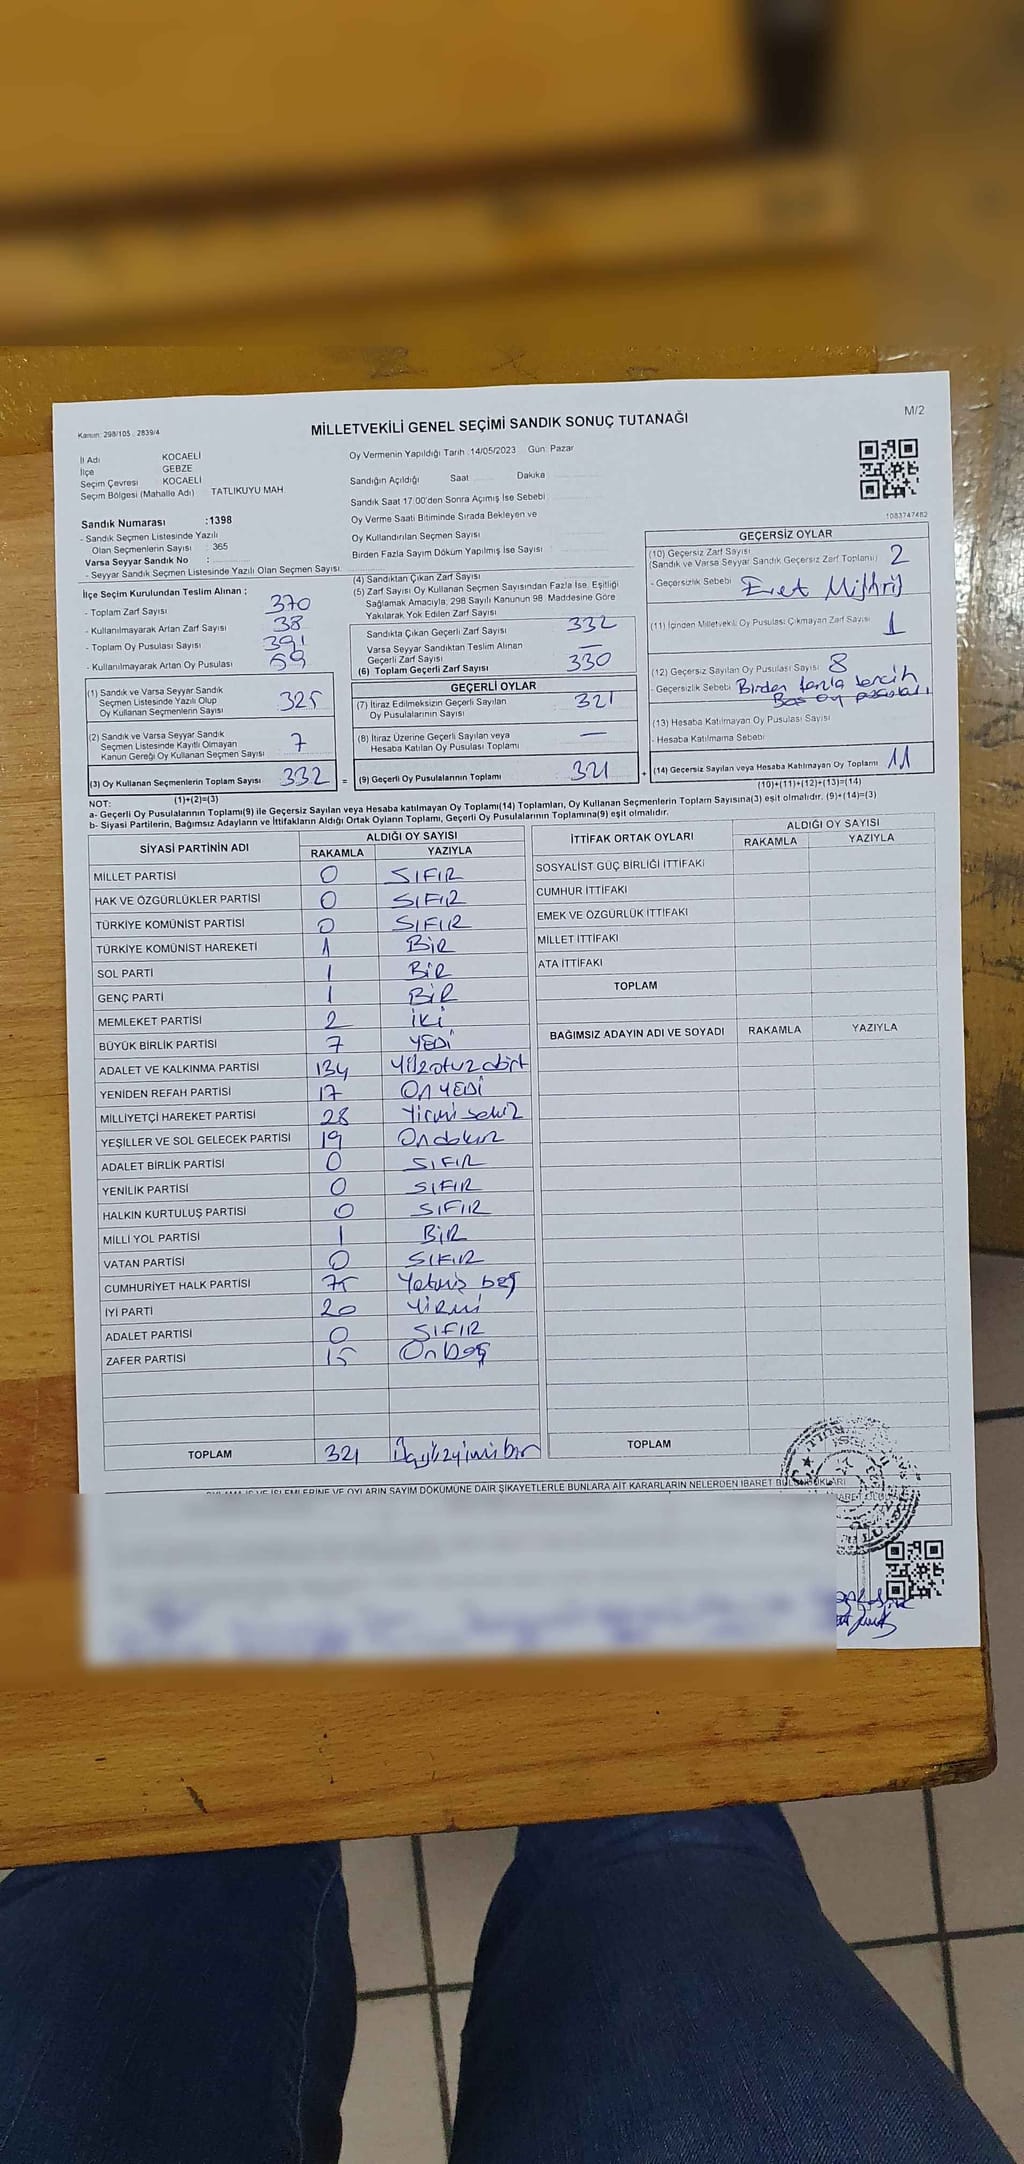 Kanun: 298/105 - 2839/4
MİLLETVEKİLİ GENEL SEÇİMİ SANDIK SONUÇ TUTANAĞI
M/2
İl Adı KOCAELİ
İlçe GEBZE
Seçim Çevresi KOCAELİ
Seçim Bölgesi (Mahalle Adı) TATLIKUYU MAH.
Sandık Numarası :1398
- Sandık Seçmen Listesinde Yazılı
Olan Seçmenlerin Sayısı : 365
Varsa Seyyar Sandık No :
- Seyyar Sandık Seçmen Listesinde Yazılı Olan Seçmen Sayısı:
Oy Vermenin Yapıldığı Tarih :14/05/2023 Gün: Pazar
Sandığın Açıldığı Saat Dakika
Sandık Saat 17.00'den Sonra Açımış İse Sebebi
Oy Verme Saati Bitiminde Sırada Bekleyen ve
Oy Kullandırılan Seçmen Sayısı
Birden Fazla Sayım Döküm Yapılmış İse Sayısı
1083747482
İlçe Seçim Kurulundan Teslim Alınan ;
- Toplam Zarf Sayısı 370
- Kullanılmayarak Artan Zarf Sayısı 38
- Toplam Oy Pusulası Sayısı 391
- Kullanılmayarak Artan Oy Pusulası 59
(1) Sandık ve Varsa Seyyar Sandık
Seçmen Listesinde Yazılı Olup
Oy Kullanan Seçmenlerin Sayısı 325
(2) Sandık ve Varsa Seyyar Sandık
Seçmen Listesinde Kayıtlı Olmayan
Kanun Gereği Oy Kullanan Seçmen Sayısı 7
(3) Oy Kullanan Seçmenlerin Toplam Sayısı 332 =
(1)+(2)=(3)
(4) Sandıktan Çıkan Zarf Sayısı
(5) Zarf Sayısı Oy Kullanan Seçmen Sayısından Fazla İse, Eşitliği
Sağlamak Amacıyla, 298 Sayılı Kanunun 98. Maddesine Göre
Yakılarak Yok Edilen Zarf Sayısı
Sandıkta Çıkan Geçerli Zarf Sayısı 332
Varsa Seyyar Sandıktan Teslim Alınan
Geçerli Zarf Sayısı —
(6) Toplam Geçerli Zarf Sayısı 330
GEÇERLİ OYLAR
(7) İtiraz Edilmeksizin Geçerli Sayılan
Oy Pusulalarının Sayısı 321
(8) İtiraz Üzerine Geçerli Sayılan veya
Hesaba Katılan Oy Pusulası Toplamı —
(9) Geçerli Oy Pusulalarının Toplamı 321 +
GEÇERSİZ OYLAR
(10) Geçersiz Zarf Sayısı 2
(Sandık ve Varsa Seyyar Sandık Geçersiz Zarf Toplamı)
- Geçersizlik Sebebi Evet Mührü
(11) İçinden Milletvekili Oy Pusulası Çıkmayan Zarf Sayısı 1
(12) Geçersiz Sayılan Oy Pusulası Sayısı 8
- Geçersizlik Sebebi Birden fazla tercih
Boş oy pusulası
(13) Hesaba Katılmayan Oy Pusulası Sayısı
- Hesaba Katılmama Sebebi
(14) Geçersiz Sayılan veya Hesaba Katılmayan Oy Toplamı 11
(10)+(11)+(12)+(13)=(14)
NOT:
a- Geçerli Oy Pusulalarının Toplamı(9) ile Geçersiz Sayılan veya Hesaba katılmayan Oy Toplamı(14) Toplamları, Oy Kullanan Seçmenlerin Toplam Sayısına(3) eşit olmalıdır. (9)+(14)=(3)
b- Siyasi Partilerin, Bağımsız Adayların ve İttifakların Aldığı Ortak Oyların Toplamı, Geçerli Oy Pusulalarının Toplamına(9) eşit olmalıdır.
SİYASİ PARTİNİN ADI ALDIĞI OY SAYISI
RAKAMLA YAZIYLA
MİLLET PARTİSİ 0 SIFIR
HAK VE ÖZGÜRLÜKLER PARTİSİ 0 SIFIR
TÜRKİYE KOMÜNİST PARTİSİ 0 SIFIR
TÜRKİYE KOMÜNİST HAREKETİ 1 BİR
SOL PARTİ 1 BİR
GENÇ PARTİ 1 BİR
MEMLEKET PARTİSİ 2 İKİ
BÜYÜK BİRLİK PARTİSİ 7 YEDİ
ADALET VE KALKINMA PARTİSİ 134 Yüzotuzdört
YENİDEN REFAH PARTİSİ 17 ON YEDİ
MİLLİYETÇİ HAREKET PARTİSİ 28 Yirmi sekiz
YEŞİLLER VE SOL GELECEK PARTİSİ 19 Ondokuz
ADALET BİRLİK PARTİSİ 0 SIFIR
YENİLİK PARTİSİ 0 SIFIR
HALKIN KURTULUŞ PARTİSİ 0 SIFIR
MİLLİ YOL PARTİSİ 1 BİR
VATAN PARTİSİ 0 SIFIR
CUMHURİYET HALK PARTİSİ 75 Yetmiş beş
İYİ PARTİ 20 YİRMİ
ADALET PARTİSİ 0 SIFIR
ZAFER PARTİSİ 15 On beş
TOPLAM 321 Üçyüzyirmibir
İTTİFAK ORTAK OYLARI ALDIĞI OY SAYISI
RAKAMLA YAZIYLA
SOSYALİST GÜÇ BİRLİĞİ İTTİFAKI
CUMHUR İTTİFAKI
EMEK VE ÖZGÜRLÜK İTTİFAKI
MİLLET İTTİFAKI
ATA İTTİFAKI
TOPLAM
BAĞIMSIZ ADAYIN ADI VE SOYADI RAKAMLA YAZIYLA
TOPLAM
İŞLEMLERİNE VE OYLARIN SAYIM DÖKÜMÜNE DAİR ŞİKAYETLERLE BUNLARA AİT KARARLARIN NELERDEN İBARET BULUNDUKLARI